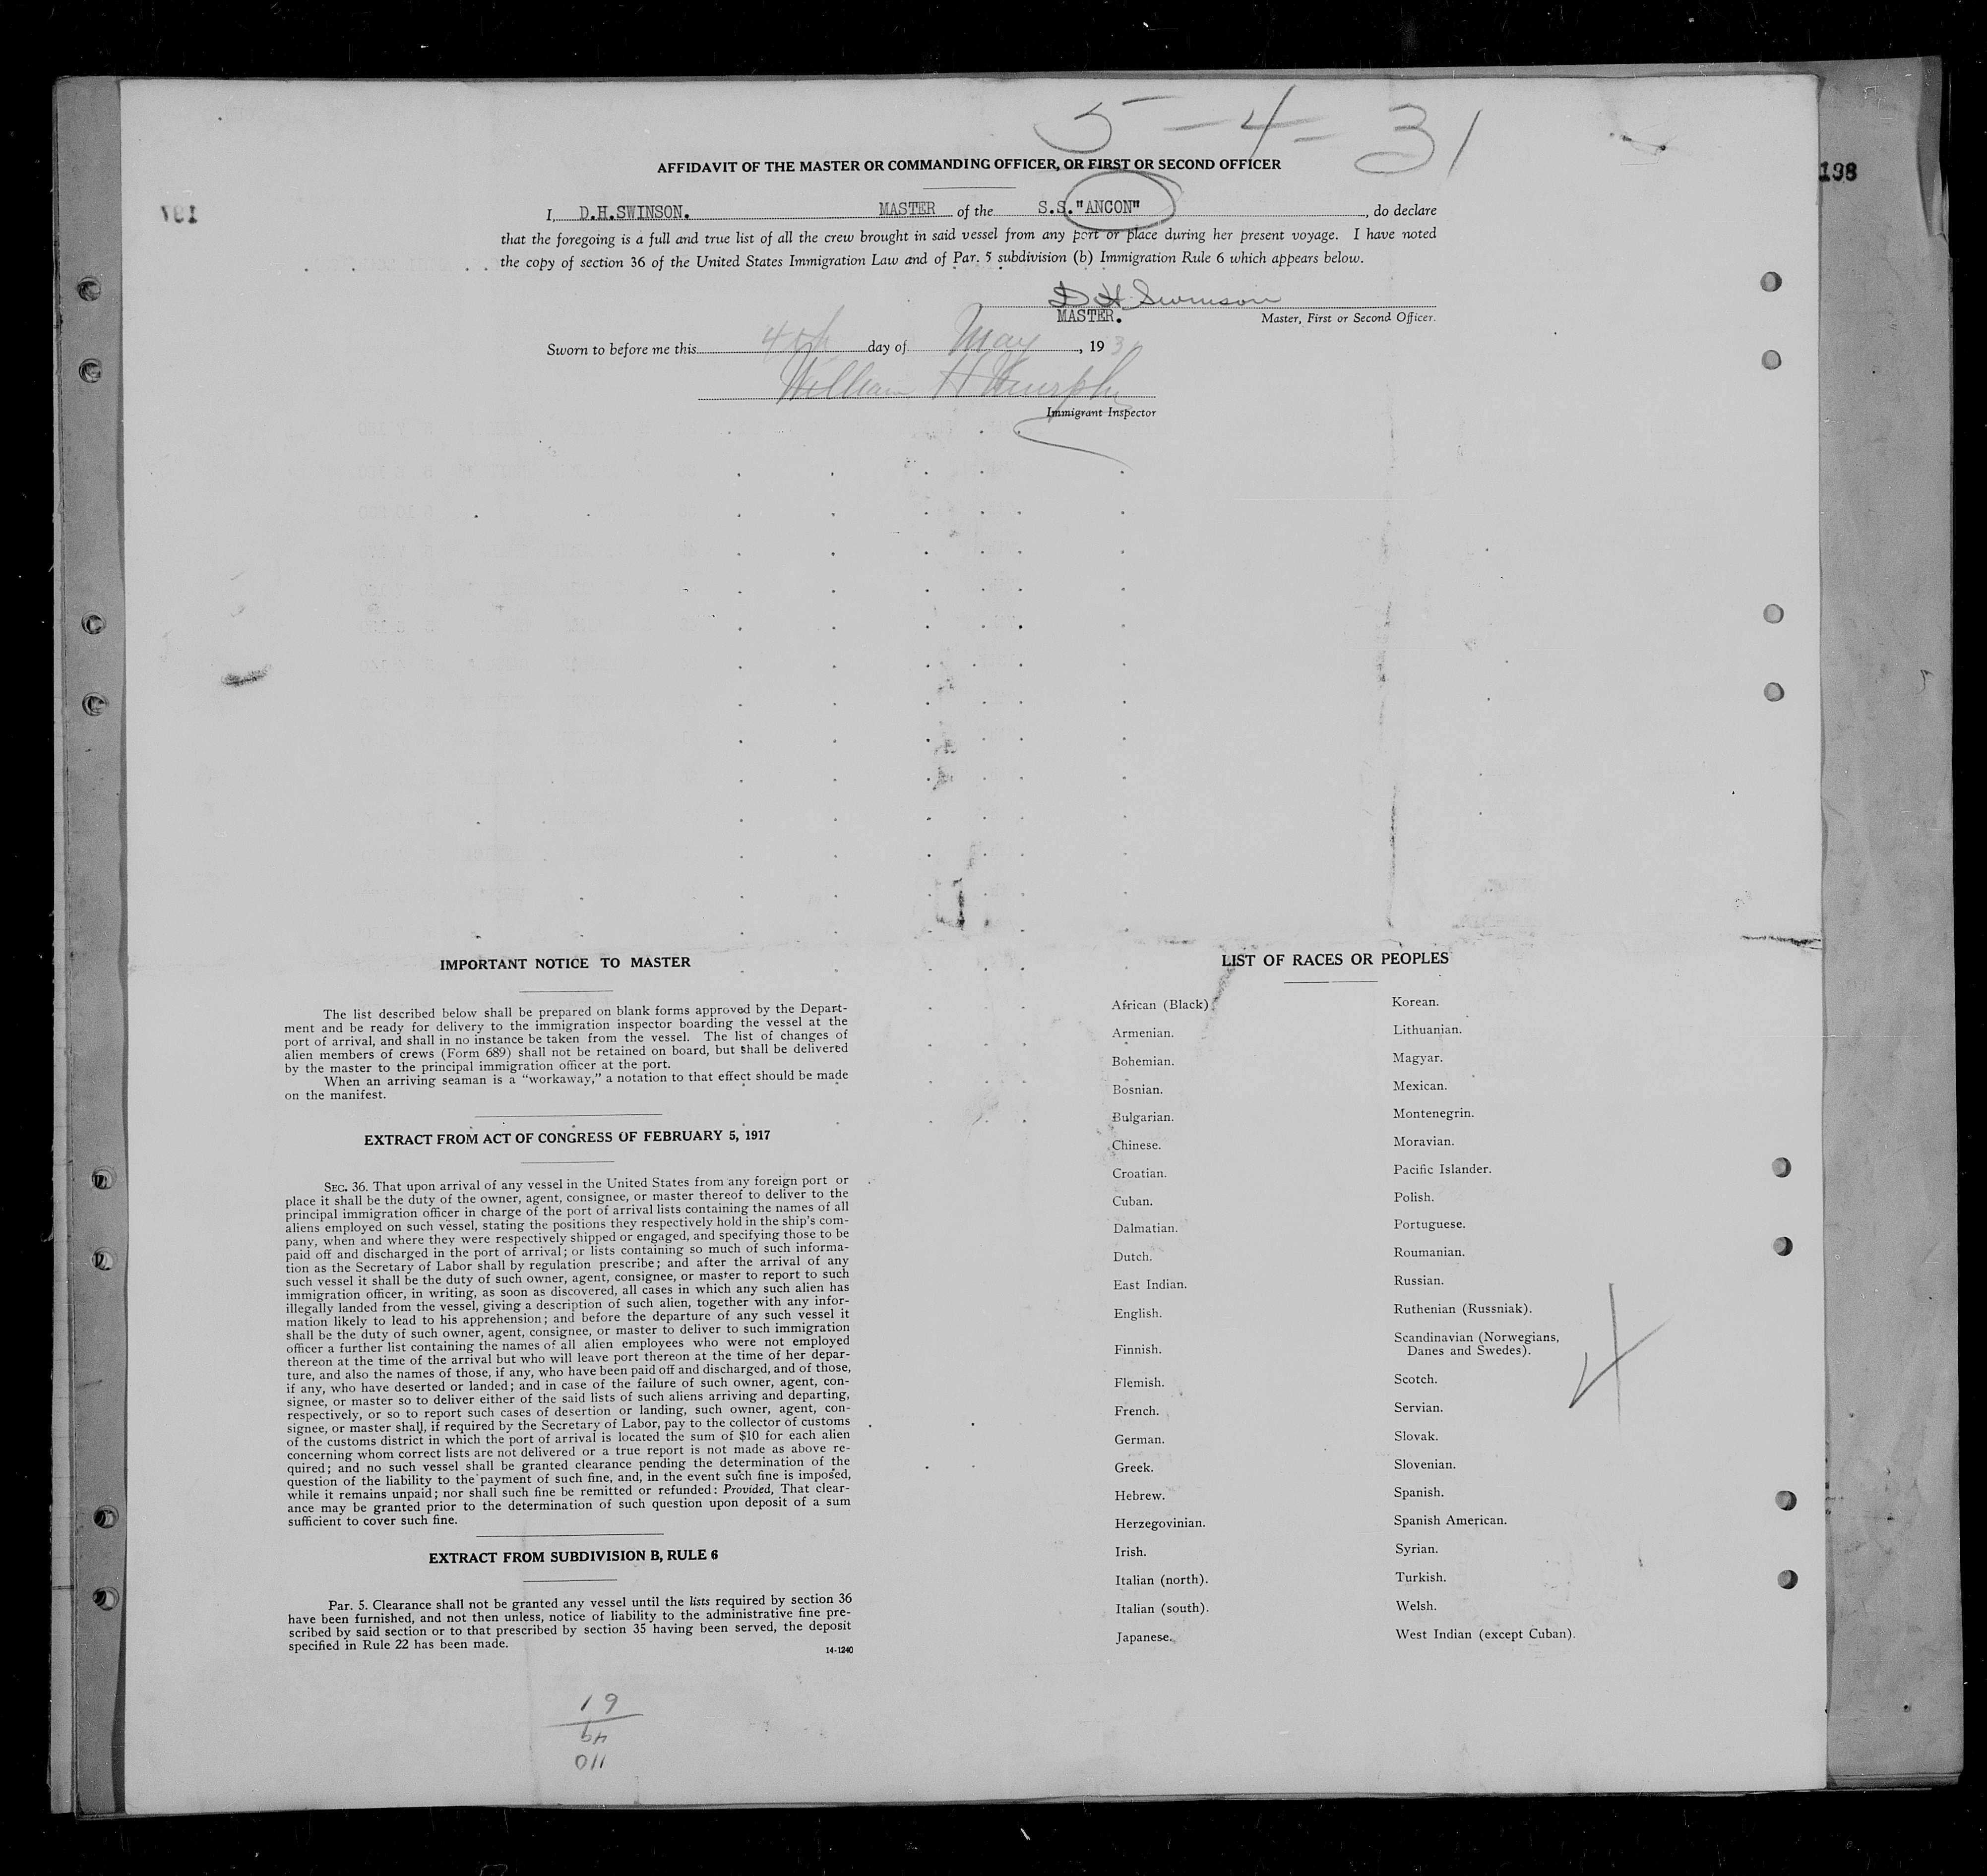 5-4-31
AFFIDAVIT OF THE MASTER OR COMMANDING OFFICER, OR FIRST OR SECOND OFFICER
198
I, D.H.SWINSON. MASTER of the S.S."ANCON", do declare
that the foregoing is a full and true list of all the crew brought in said vessel from any port or place during her present voyage. I have noted
the copy of section 36 of the United States Immigration Law and of Par. 5 subdivision (b) Immigration Rule 6 which appears below.
D H Swinson
MASTER. Master, First or Second Officer.
Sworn to before me this 4th day of May, 1931
William H Murphy
Immigrant Inspector
IMPORTANT NOTICE TO MASTER
The list described below shall be prepared on blank forms approved by the Depart-
ment and be ready for delivery to the immigration inspector boarding the vessel at the
port of arrival, and shall in no instance be taken from the vessel. The list of changes of
alien members of crews (Form 689) shall not be retained on board, but shall be delivered
by the master to the principal immigration officer at the port.
When an arriving seaman is a “workaway,” a notation to that effect should be made
on the manifest.
EXTRACT FROM ACT OF CONGRESS OF FEBRUARY 5, 1917
SEC. 36. That upon arrival of any vessel in the United States from any foreign port or
place it shall be the duty of the owner, agent, consignee, or master thereof to deliver to the
principal immigration officer in charge of the port of arrival lists containing the names of all
aliens employed on such vessel, stating the positions they respectively hold in the ship's com-
pany, when and where they were respectively shipped or engaged, and specifying those to be
paid off and discharged in the port of arrival; or lists containing so much of such informa-
tion as the Secretary of Labor shall by regulation prescribe; and after the arrival of any
such vessel it shall be the duty of such owner, agent, consignee, or master to report to such
immigration officer, in writing, as soon as discovered, all cases in which any such alien has
illegally landed from the vessel, giving a description of such alien, together with any infor-
mation likely to lead to his apprehension; and before the departure of any such vessel it
shall be the duty of such owner, agent, consignee, or master to deliver to such immigration
officer a further list containing the names of all alien employees who were not employed
thereon at the time of the arrival but who will leave port thereon at the time of her depar-
ture, and also the names of those, if any, who have been paid off and discharged, and of those,
if any, who have deserted or landed; and in case of the failure of such owner, agent, con-
signee, or master so to deliver either of the said lists of such aliens arriving and departing,
respectively, or so to report such cases of desertion or landing, such owner, agent, con-
signee, or master shall, if required by the Secretary of Labor, pay to the collector of customs
of the customs district in which the port of arrival is located the sum of $10 for each alien
concerning whom correct lists are not delivered or a true report is not made as above re-
quired; and no such vessel shall be granted clearance pending the determination of the
question of the liability to the payment of such fine, and, in the event such fine is imposed,
while it remains unpaid; nor shall such fine be remitted or refunded: Provided, That clear-
ance may be granted prior to the determination of such question upon deposit of a sum
sufficient to cover such fine.
EXTRACT FROM SUBDIVISION B, RULE 6
Par. 5. Clearance shall not be granted any vessel until the lists required by section 36
have been furnished, and not then unless, notice of liability to the administrative fine pre-
scribed by said section or to that prescribed by section 35 having been served, the deposit
specified in Rule 22 has been made.
14-1240
LIST OF RACES OR PEOPLES
African (Black).
Armenian.
Bohemian.
Bosnian.
Bulgarian.
Chinese.
Croatian.
Cuban.
Dalmatian.
Dutch.
East Indian.
English.
Finnish.
Flemish.
French.
German.
Greek.
Hebrew.
Herzegovinian.
Irish.
Italian (north).
Italian (south).
Japanese.
Korean.
Lithuanian.
Magyar.
Mexican.
Montenegrin.
Moravian.
Pacific Islander.
Polish.
Portuguese.
Roumanian.
Russian.
Ruthenian (Russniak).
Scandinavian (Norwegians,
Danes and Swedes).
Scotch.
Servian.
Slovak.
Slovenian.
Spanish.
Spanish American.
Syrian.
Turkish.
Welsh.
West Indian (except Cuban).
4